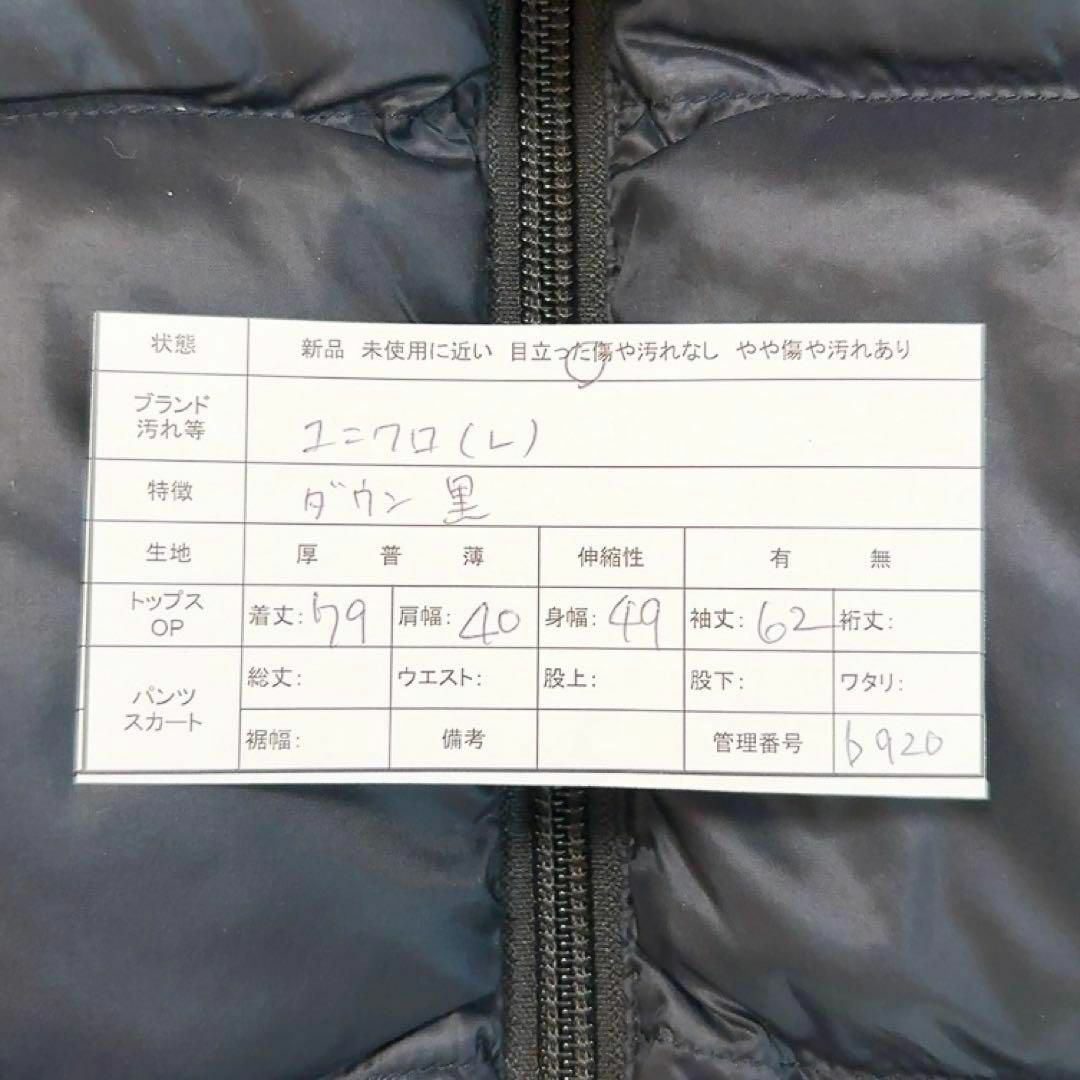 状態 新品 未使用に近い 目立った傷や汚れなし やや傷や汚れあり
ブランド
汚れ等 ユニクロ(L)
特徴 ダウン 黒
生地 厚 普 薄 伸縮性 有 無
トップス
OP 着丈:79 肩幅:40 身幅:49 袖丈:62 裄丈:
パンツ
スカート 総丈: ウエスト: 股上: 股下: ワタリ:
裾幅: 備考 管理番号 b920